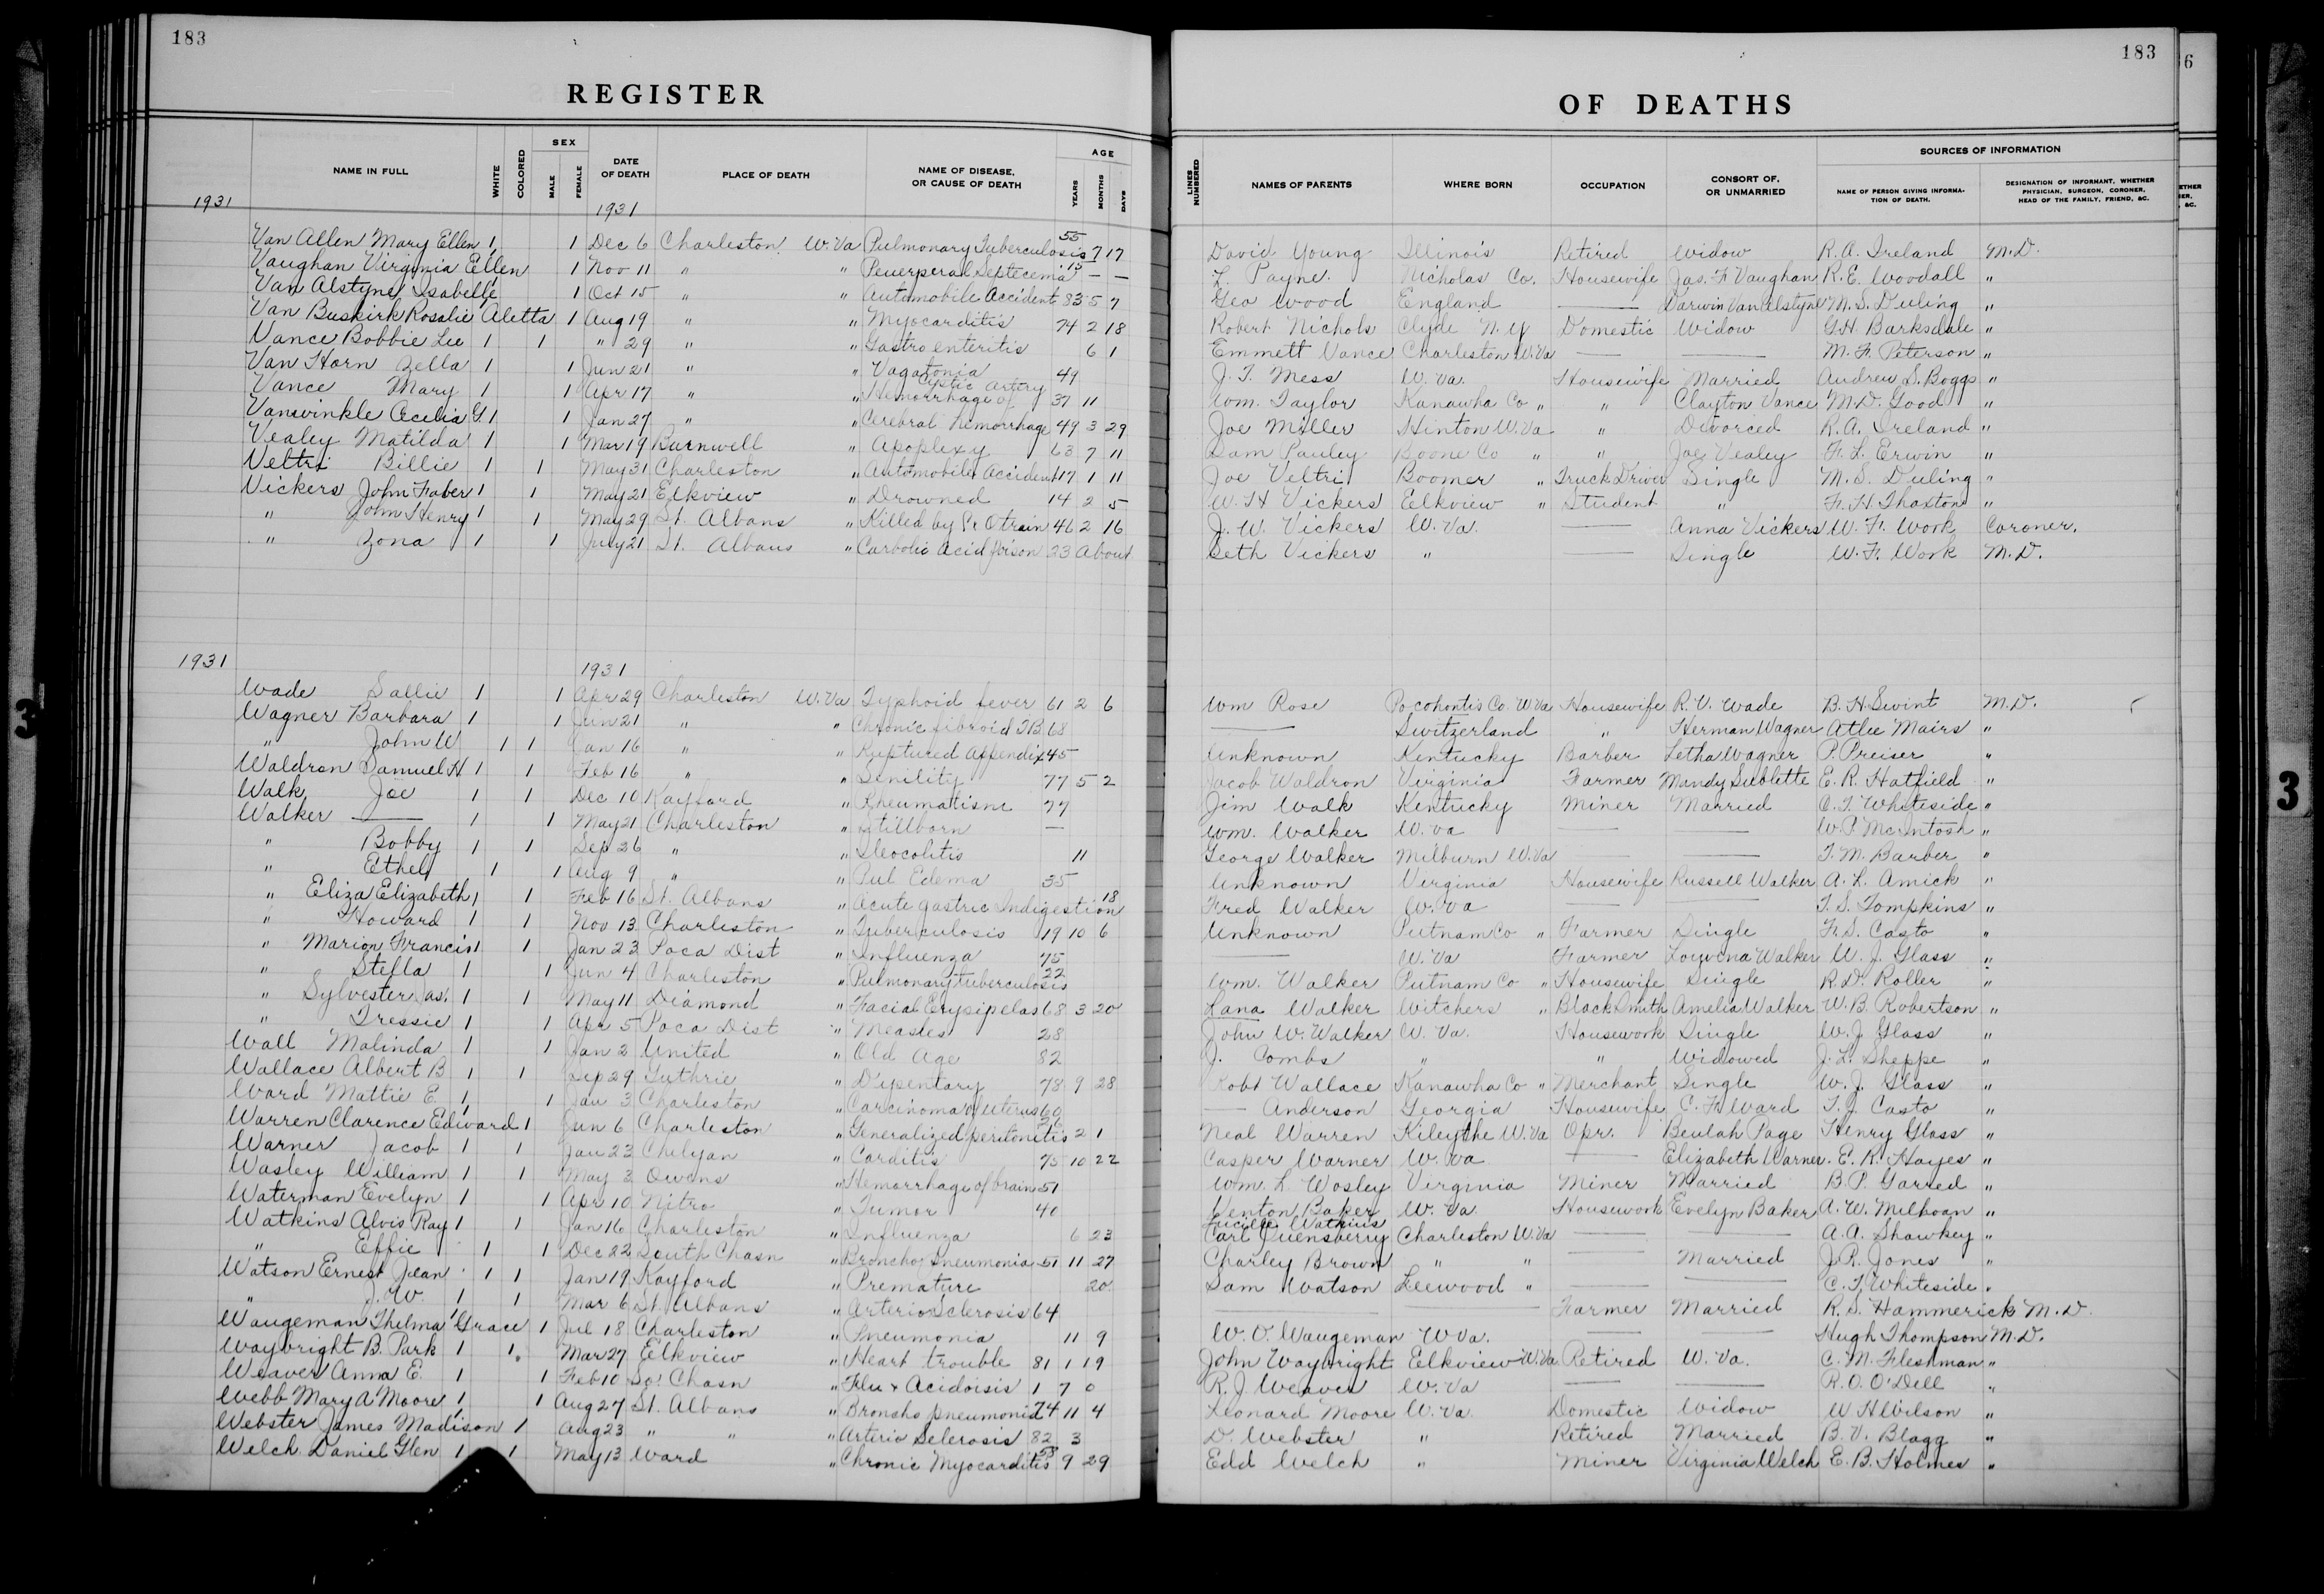 183
183
6
REGISTER
OF DEATHS
NAME IN FULL WHITE COLORED SEX MALE FEMALE DATE OF DEATH PLACE OF DEATH NAME OF DISEASE, OR CAUSE OF DEATH AGE YEARS MONTHS DAYS LINES NUMBERED NAMES OF PARENTS WHERE BORN OCCUPATION CONSORT OF, OR UNMARRIED SOURCES OF INFORMATION NAME OF PERSON GIVING INFORMATION OF DEATH. DESIGNATION OF INFORMANT, WHETHER PHYSICIAN, SURGEON, CORONER, HEAD OF THE FAMILY, FRIEND, &C.
1931 1931
Van Allen Mary Ellen 1 1 Dec 6 Charleston W.Va Pulmonary Tuberculosis 55 7 17 David Young Illinois Retired Widow R.A. Ireland M.D.
Vaughan Virginia Ellen 1 Nov 11 " " Peuerperal Septecemia 15 — — L. Payne. Nicholas Co. Housewife Jas. F. Vaughan R.E. Woodall "
Van Alstyne Isabelle 1 Oct 15 " " Automobile Accident 83 5 7 Geo Wood England — Darwin Van Alstyne M.S. Duling "
Van Buskirk Rosalie Aletta 1 Aug 19 " " Myocarditis 74 2 18 Robert Nichols Clyde N.Y Domestic Widow G.H. Barksdale "
Vance Bobbie Lee 1 1 " 29 " " Gastro enteritis 6 1 Emmett Vance Charleston W.Va — — M.F. Peterson "
Van Horn Zella 1 1 Jun 21 " " Vagatonia 49 J.T. Mess W.Va. Housewife Married Andrew S. Boggs "
Vance Mary 1 1 Apr 17 " " Hemorrhage of Cystic Artery 37 11 Wm. Taylor Kanawha Co " " Clayton Vance M.D. Good "
Vanwinkle Acelia G. 1 1 Jan 27 " " Cerebral Hemorrhage 49 3 29 Joe Miller Hinton W.Va " Divorced R.A. Ireland "
Vealey Matilda 1 1 Mar 19 Burnwell " Apoplexy 63 7 11 Sam Pauley Boone Co " " Joe Vealey F.L. Erwin "
Veltri Billie 1 1 May 31 Charleston " Automobile Accident 17 1 11 Joe Veltri Boomer " Truck Driver Single M.S. Duling "
Vickers John Faber 1 1 May 21 Elkview " Drowned 14 2 5 W.H Vickers Elkview " Student " F.H. Thaxton "
" John Henry 1 1 May 29 St. Albans " Killed by C&O train 46 2 16 J.W. Vickers W.Va. — Anna Vickers W.F. Work Coroner.
" Zona 1 1 July 21 St. Albans " Carbolic Acid Poison 23 About Seth Vickers " — Single W.F. Work M.D.
1931 1931
Wade Sallie 1 1 Apr 29 Charleston W.Va Typhoid fever 61 2 6 Wm Rose Pocohontis Co. W.Va Housewife R.V. Wade B.H. Swint M.D.
Wagner Barbara 1 1 Jun 21 " " Chronic fibroid T.B. 68 — Switzerland " Herman Wagner Atlee Mairs "
" John W 1 1 Jan 16 " " Ruptured Appendix 45 Unknown Kentucky Barber Letha Wagner P. Preiser "
Waldron Samuel H 1 1 Feb 16 " " Senility 77 5 2 Jacob Waldron Virginia Farmer Mandy Sublette E.R. Hatfield "
Walk Joe 1 1 Dec 10 Kayford " Rheumatism 77 Jim Walk Kentucky Miner Married C.T. Whiteside "
Walker — 1 1 May 21 Charleston " Stillborn — Wm. Walker W.Va — — W.P. McIntosh "
" Bobby 1 1 Sep 26 " " Ileocolitis 11 George Walker Milburn W.Va — — T.M. Barber "
" Ethel 1 1 Aug 9 " " Pul Edema 35 Unknown Virginia Housewife Russell Walker A.L. Amick "
" Eliza Elizabeth 1 1 Feb 16 St. Albans " Acute Gastric Indigestion 18 Fred Walker W.Va — — T.S. Tompkins "
" Howard 1 1 Nov 13 Charleston " Tuberculosis 19 10 6 Unknown Putnam Co " Farmer Single F.S. Casto "
" Marion Francis 1 1 Jan 23 Poca Dist " Influenza 75 — W.Va Farmer Louvena Walker W.J. Glass "
" Stella 1 1 Jun 4 Charleston " Pulmonary tuberculosis 22 Wm. Walker Putnam Co " Housewife Single R.D. Roller "
" Sylvester Jas. 1 1 May 11 Diamond " Facial Erysipelas 68 3 20 Lana Walker Witchers " BlackSmith Amelia Walker W.B. Robertson "
" Tressie 1 1 Apr 5 Poca Dist " Measles 28 John W. Walker W.Va. Housework Single W.J. Glass "
Wall Malinda 1 1 Jan 2 United " Old Age 82 J. Combs " " Widowed J.L. Sheppe "
Wallace Albert B 1 1 Sep 29 Guthrie " D'ysentary 78 9 28 Robt Wallace Kanawha Co " Merchant Single W.J. Glass "
Ward Mattie E. 1 1 Jan 3 Charleston " Carcinoma of uterus 60 — Anderson Georgia Housewife C.F. Ward T.J. Casto "
Warren Clarence Edward 1 Jun 6 Charleston " Generalized peritonitis 26 2 1 Neal Warren Kileythe W.Va Opr. Beulah Page Henry Glass "
Warner Jacob 1 1 Jan 23 Chelyan " Carditis 75 10 22 Casper Warner W.Va — Elizabeth Warner E.R. Hayes "
Wasley William 1 1 May 3 Owens " Hemorrhage of brain 51 Wm. L. Wosley Virginia Miner Married B.P. Garred "
Waterman Evelyn 1 1 Apr 10 Nitro " Tumor 40 Venton Baker W.Va. Housework Evelyn Baker A.W. Milhoan "
Watkins Alvis Ray 1 1 Jan 16 Charleston " Influenza 6 23 Lucille Watkins Carl Quensberry Charleston W.Va — — A.A. Shawkey "
" Effie 1 1 Dec 22 South Chasn " Broncho Pneumonia 51 11 27 Charley Brown " " — Married J.R. Jones "
Watson Ernest Jean 1 1 Jan 19 Kayford " Premature 20 Sam Watson Leewood " — — C.T. Whiteside "
" J.W. 1 1 Mar 6 St. Albans " Arterio Sclerosis 64 — — Farmer Married R.S. Hammerick M.D.
Waugeman Thelma Grace 1 Jul 18 Charleston " Pneumonia 11 9 W.O. Waugeman W.Va. — — Hugh Thompson M.D.
Waybright B. Park 1 1 Mar 27 Elkview " Heart trouble 81 1 19 John Waybright Elkview W.Va Retired W.Va. C.M. Fleshman "
Weaver Anna E. 1 1 Feb 10 So. Chasn " Flu & Acidoisis 1 7 0 R.J. Weaver W.Va — — R.O. O'Dell "
Webb Mary A Moore 1 1 Aug 27 St. Albans " Broncho pneumonia 74 11 4 Leonard Moore W.Va. Domestic Widow W H Wilson "
Webster James Madison 1 Aug 23 " " " Arterio Sclerosis 82 3 D. Webster " Retired Married B.V. Blagg "
Welch Daniel Glen 1 1 May 13 Ward " Chronic Myocarditis 53 9 29 Edd Welch " Miner Virginia Welch E.B. Holmes "